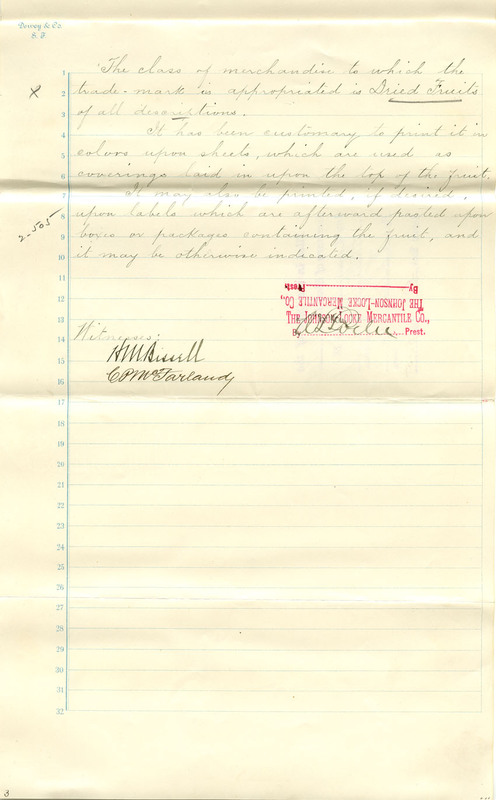 Dewey & Co.
S. F.
1 The class of merchandise to which the
X 2 trade-mark is appropriated is Dried Fruits
3 of all descriptions.
4 It has been customary to print it in
5 colors upon sheets, which are used as
6 coverings laid in upon the top of the fruit.
7 It may also be printed, if desired,
8 upon labels which are afterward pasted upon
2505
9 boxes or packages containing the fruit, and
10 it may be otherwise indicated.
11
By Prest.
12
THE JOHNSON-LOCKE MERCANTILE CO.,
13
THE JOHNSON-LOCKE MERCANTILE CO.,
14 Witnesses:
By Prest.
15 H M Bissell
16 C P McFarland
17
18
19
20
21
22
23
24
25
26
27
28
29
30
31
32
3